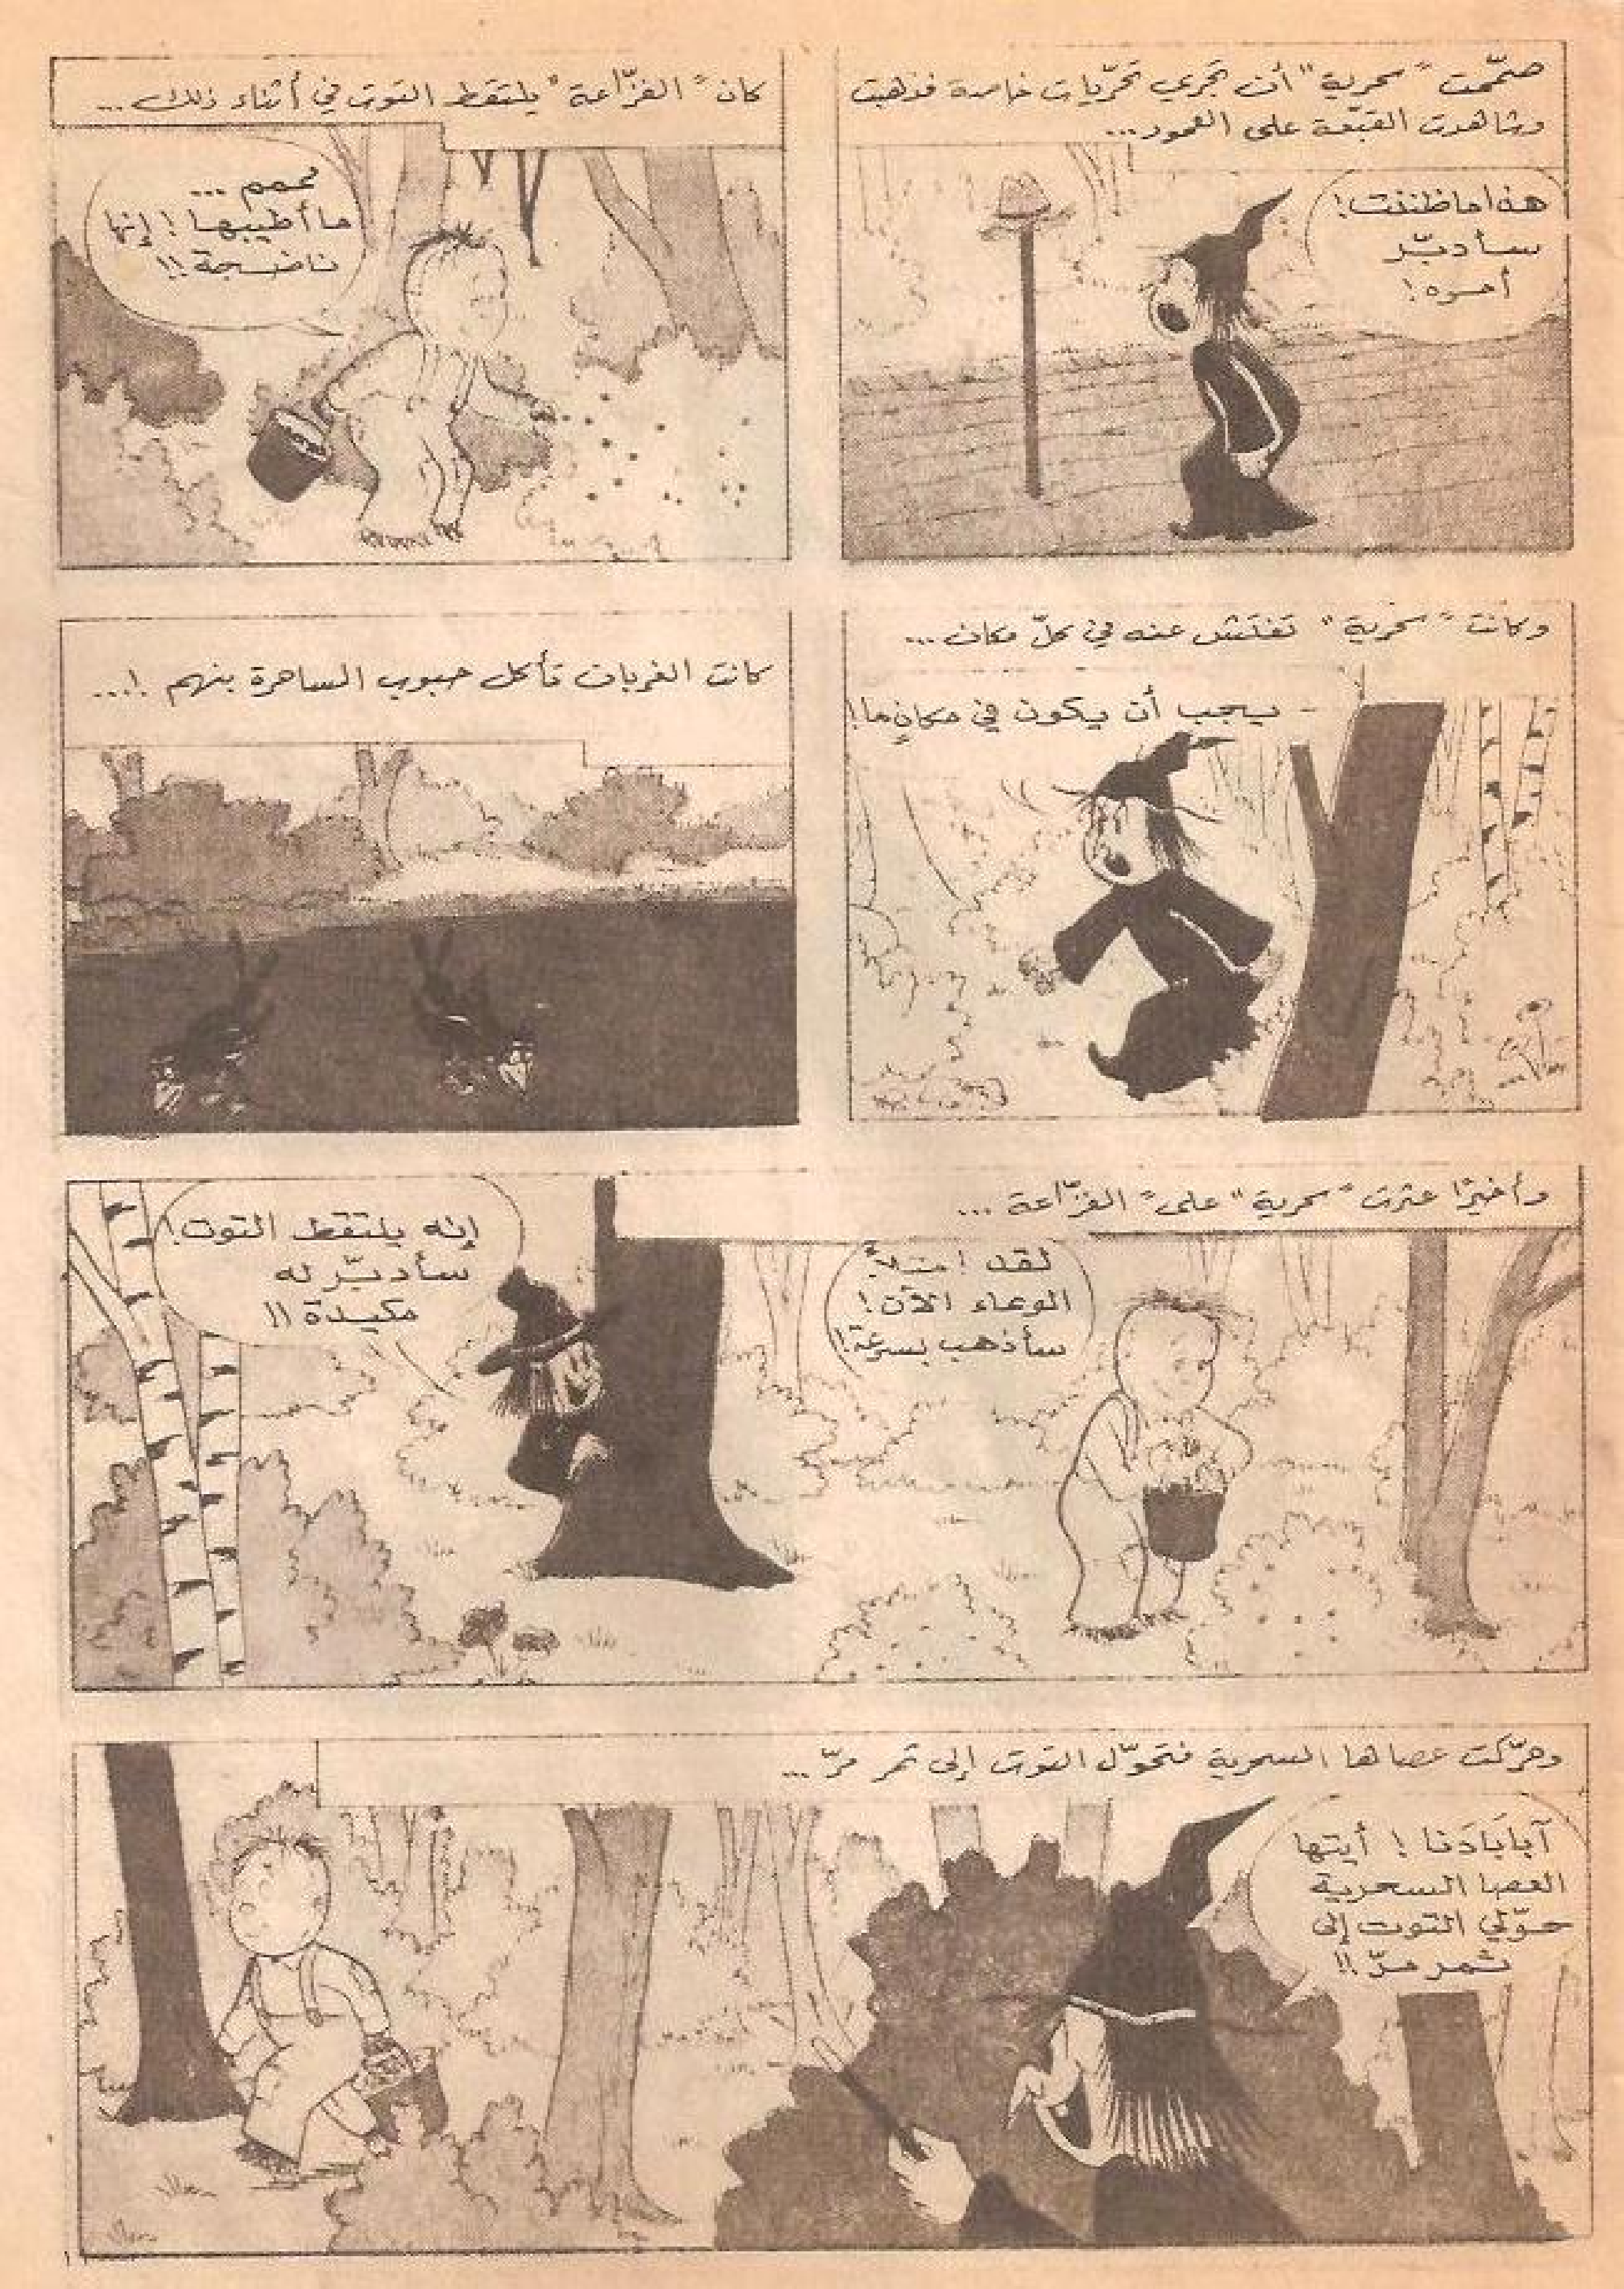 صمّمت "سحرية" أن تجري تحرّيات خاصة فذهبت
وشاهدت القبّعة على العمود...
هذا ما ظننت!
سأدبّر
أمره!
كان "الفزّاعة" يلتقط التوت في أثناء ذلك...
ممم...
ما أطيبها! إنها
ناضجة!!
وكانت "سحرية" تفتش عنه في كلّ مكان...
- يجب أن يكون في مكانٍ ما!
كانت الغربان تأكل حبوب الساحرة بنهم!...
وأخيرًا عثرت "سحرية" على "الفزّاعة...
لقد امتلأ
الوعاء الآن!
سأذهب بسرعة!
إنه يلتقط التوت!
سأدبّر له
مكيدة!!
وحرّكت عصاها السحرية فتحوّل التوت إلى ثمر مرّ...
آبابَادَنا! أيتها
العصا السحرية
حوّلي التوت إلى
ثمر مرّ!!